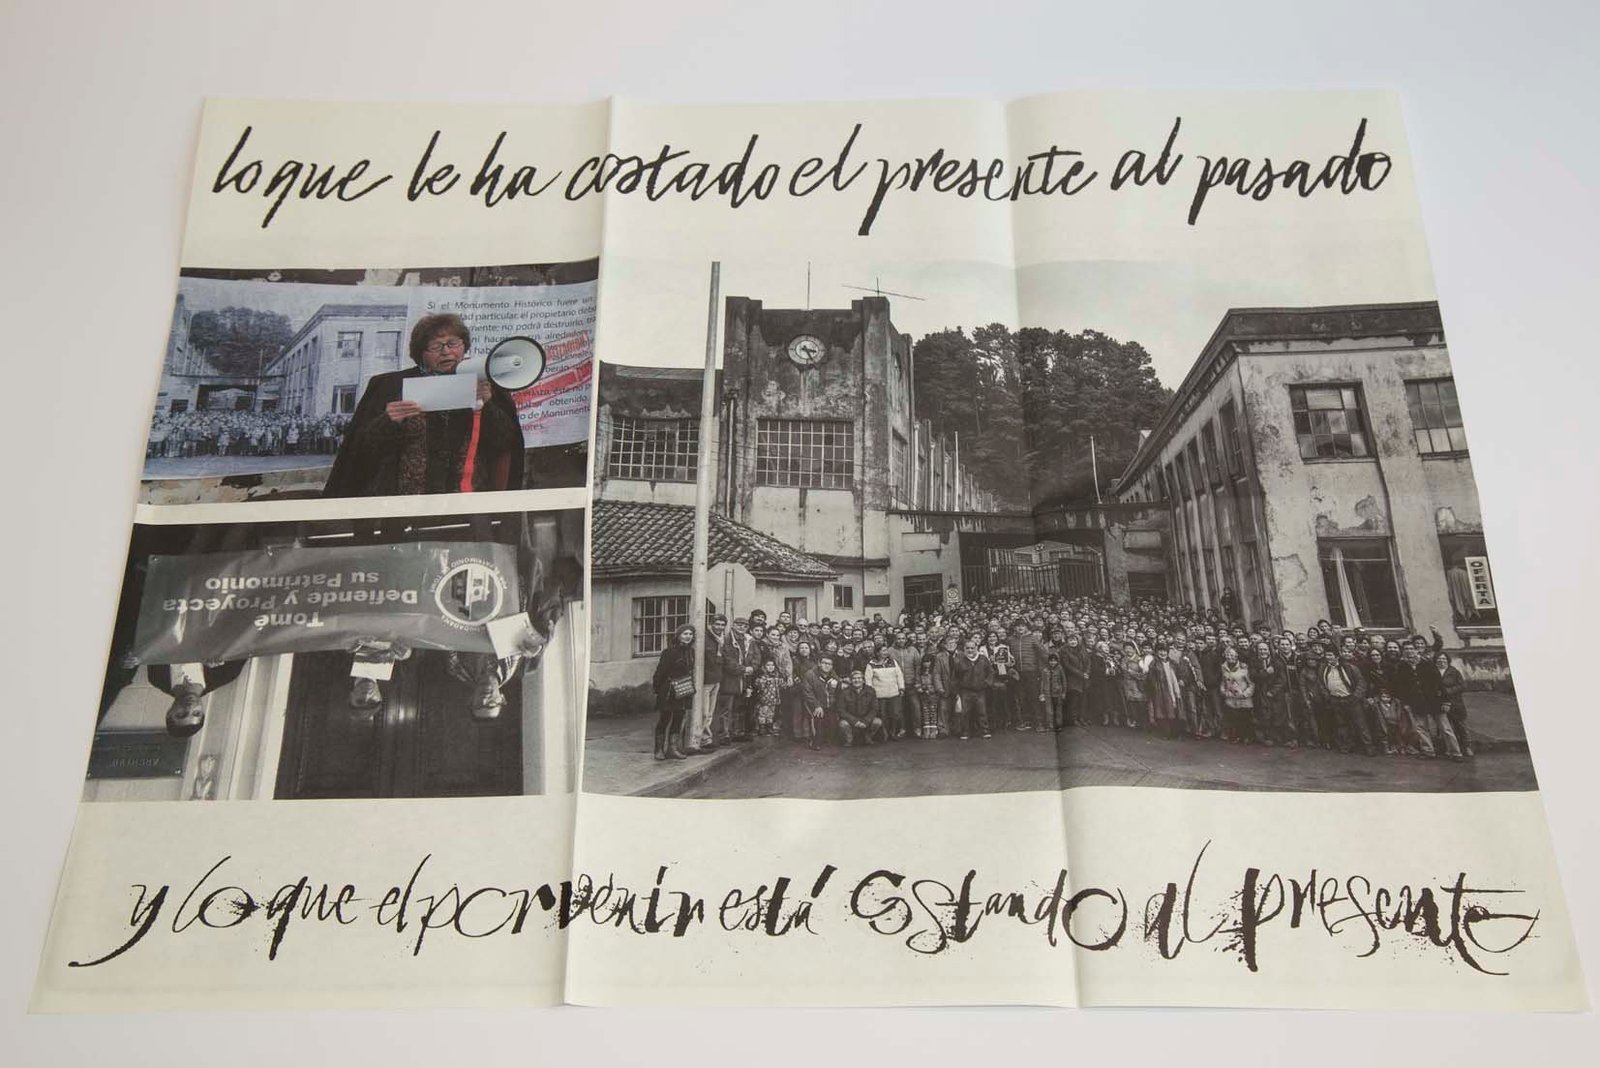 lo que le ha costado el presente al pasado
Si el Monumento Histórico fuere un
particular, el propietario
no podrá destruirlo,
ni
haber
obtenido.
de Monumento
OFERTA
Tomé
Defiende y Proyecta
su Patrimonio
ARCHIVO
y lo que el porvenir está costando al presente